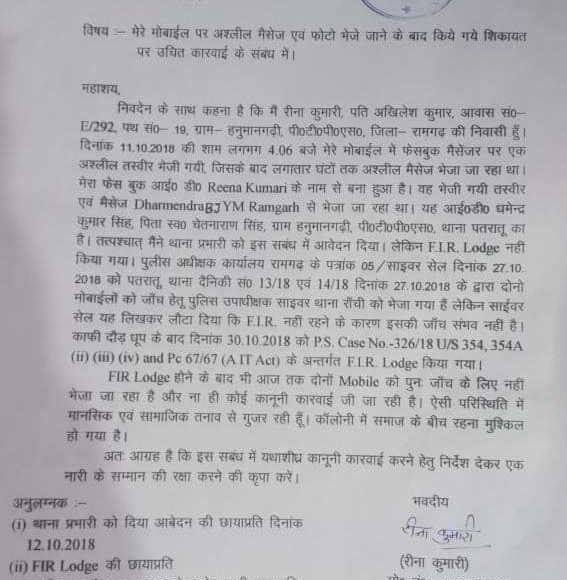 विषय :– मेरे मोबाईल पर अश्लील मैसेज एवं फोटो भेजे जाने के बाद किये गये शिकायत
पर उचित कारवाई के संबंध में।
महाशय,
निवदेन के साथ कहना है कि मैं रीना कुमारी, पति अखिलेश कुमार, आवास सं०–
E/292, पथ सं०– 19, ग्राम– हनुमानगढ़ी, पी०टी०पी०एस०, जिला– रामगढ़ की निवासी हूँ।
दिनांक 11.10.2018 की शाम लगभग 4.06 बजे मेरे मोबाईल में फेसबुक मैसेंजर पर एक
अश्लील तस्वीर भेजी गयी, जिसके बाद लगातार घंटों तक अश्लील मैसेज भेजा जा रहा था।
मेरा फेस बुक आई० डी० Reena Kumari के नाम से बना हुआ है। वह भेजी गयी तस्वीर
एवं मैसेज DharmendraBJYM Ramgarh से भेजा जा रहा था। यह आई०डी० धमेन्द्र
कुमार सिंह, पिता स्व० चेतनारायण सिंह, ग्राम हनुमानगढ़ी, पी०टी०पी०एस०, थाना पतरातू का
है। तत्पश्चात् मैंने थाना प्रभारी को इस सबंध में आवेदन दिया। लेकिन F.I.R. Lodge नहीं
किया गया। पुलीस अधीक्षक कार्यालय रामगढ़ के पत्रांक 05/साइवर सेल दिनांक 27.10.
2018 को पतरातू थाना दैनिकी सं० 13/18 एवं 14/18 दिनांक 27.10.2018 के द्वारा दोनो
मोबाईलों को जाँच हेतू पुलिस उपाधीक्षक साइवर थाना राँची को भेजा गया हैं लेकिन साईवर
सेल यह लिखकर लौटा दिया कि F.I.R. नहीं रहने के कारण इसकी जाँच संभव नहीं है।
काफी दौड़ धूप के बाद दिनांक 30.10.2018 को P.S. Case No.-326/18 U/S 354, 354A
(ii) (iii) (iv) and Pc 67/67 (A IT Act) के अन्तर्गत F.I.R. Lodge किया गया।
FIR Lodge होने के बाद भी आज तक दोनों Mobile को पुनः जाँच के लिए नहीं
भेजा जा रहा है और ना ही कोई कानूनी कारवाई जी जा रही है। ऐसी परिस्थिति में
मानसिक एवं सामाजिक तनाव से गुजर रही हूँ। कॉलोनी में समाज के बीच रहना मुश्किल
हो गया है।
अतः आग्रह है कि इस सबंध में यथाशीघ्र कानूनी कारवाई करने हेतु निर्देश देकर एक
नारी के सम्मान की रक्षा करने की कृपा करें।
अनुलग्नक :–
भवदीय
(i) थाना प्रभारी को दिया आबेदन की छायाप्रति दिनांक
12.10.2018
रीना कुमारी
(ii) FIR Lodge की छायाप्रति
(रीना कुमारी)